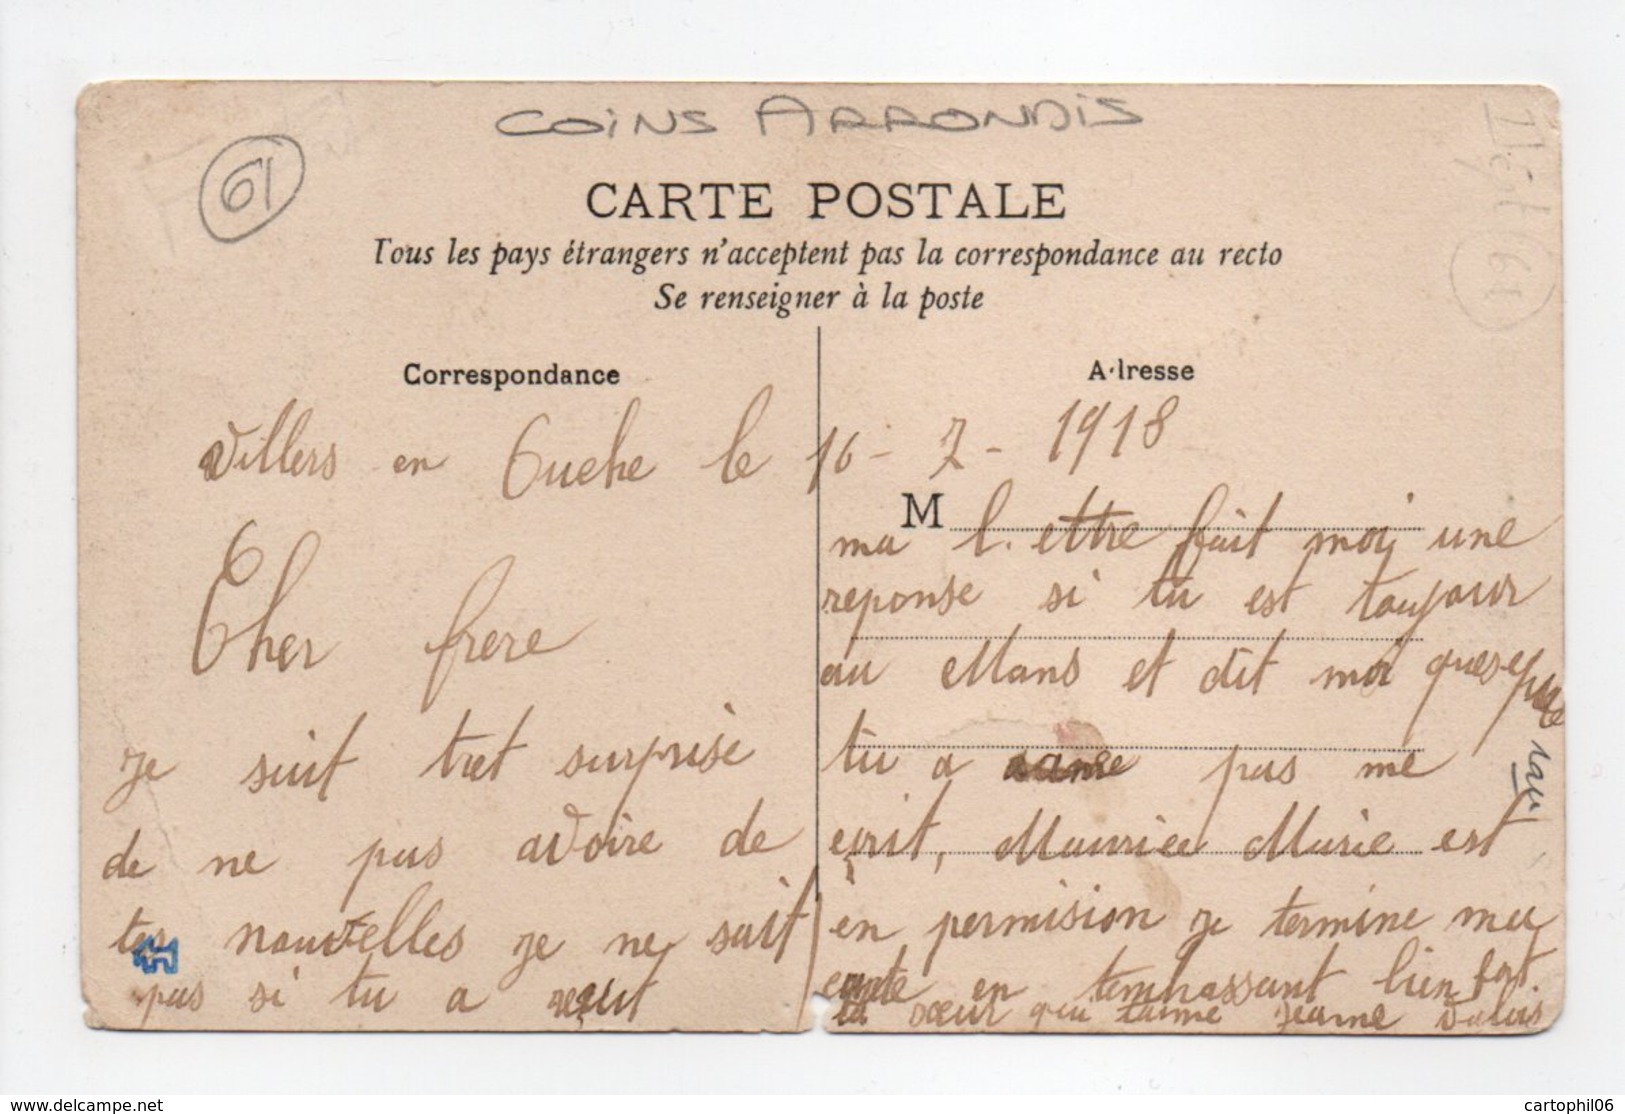 COINS ARRONDIS
61
CARTE POSTALE
Tous les pays étrangers n'acceptent pas la correspondance au recto
Se renseigner à la poste
Correspondance
Adresse
Villers en Ouche le 16 - 7 - 1918
Cher frere
je suit tret surprise
de ne pas avoire de
tes nouvelles je ne sait
pas si tu a recut
M
ma lettre fait moi une
reponse si tu est toujour
au Mans et dit moi
tu a pas me
ecrit, Maurice Marie est
en permision je termine ma
carte en tembrassant bien fort
ta sœur qui taime jeanne Valois
61
www.delcampe.net
cartophil06